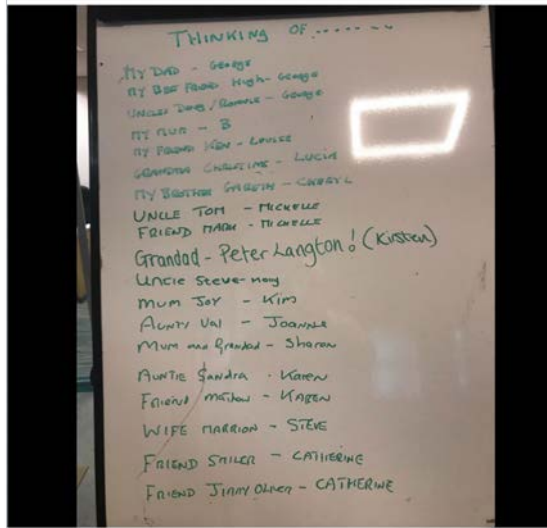 THINKING OF .......
MY DAD - George
MY BEF FRIEND Hugh - George
UNCLES Doug / Ronnie - George
MY MUM - B
MY FRIEND KEN - LOUISE
GRANDMA CHRISTINE - LUCIA
MY BROTHER GARETH - CHERYL
UNCLE TOM - MICHELLE
FRIEND MARK - MICHELLE
Grandad - Peter Langton! (Kirsten)
Uncle Steve -
MUM JOY - KIM
AUNTY Val - JOANNE
MUM and Grandad - Sharon
AUNTIE Sandra - Karen
FRIEND - KAREN
WIFE MARRION - STEVE
FRIEND SMILER - CATHERINE
FRIEND JIMMY OLIVER - CATHERINE